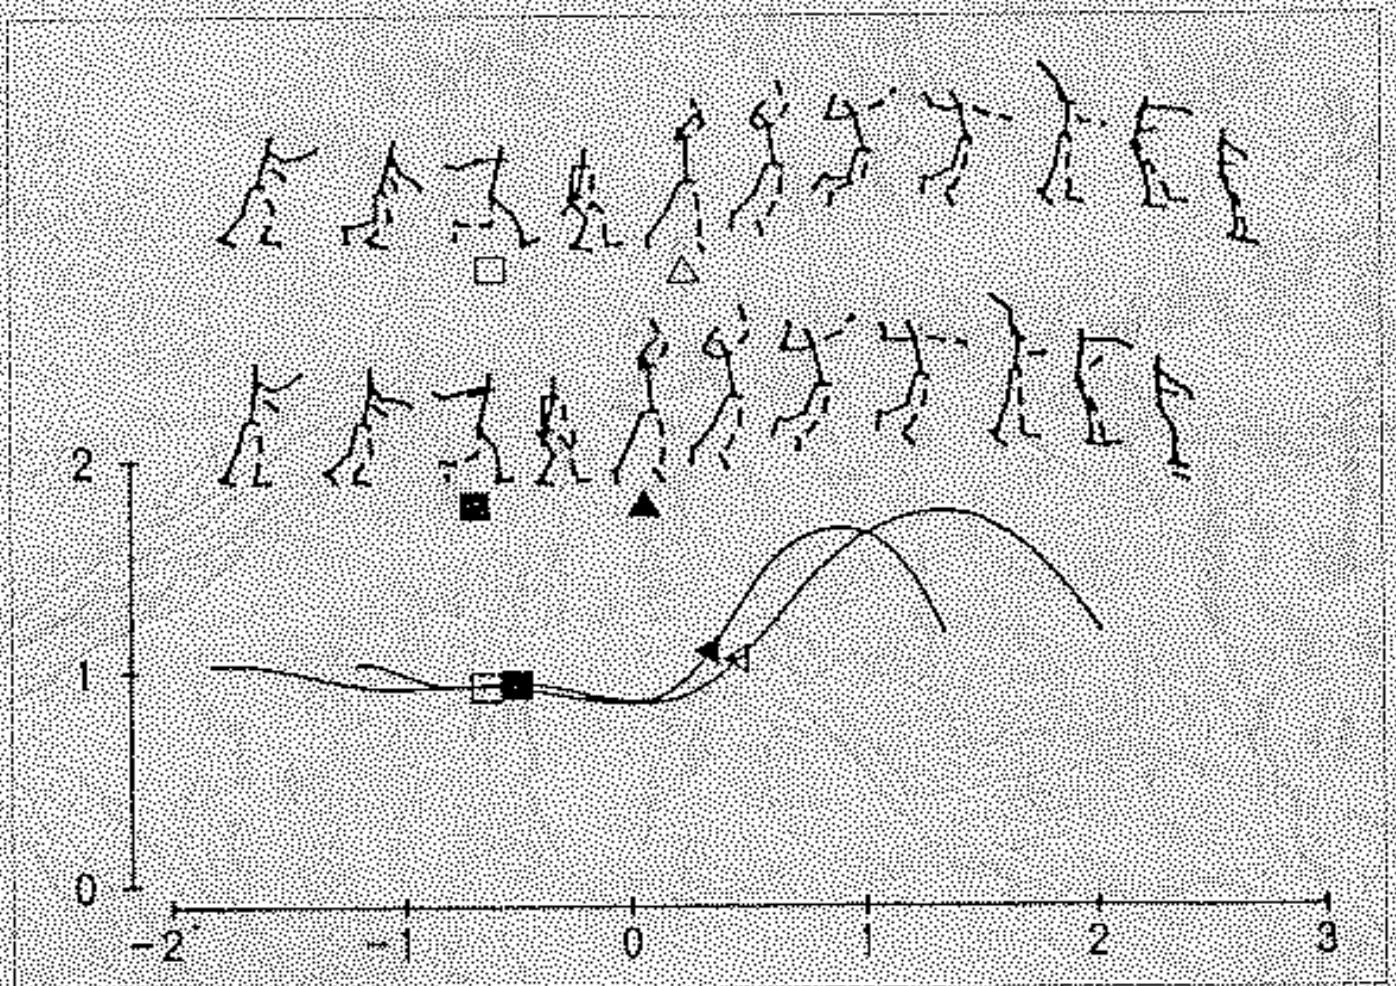 2
1
0
-2 -1 0 1 2 3